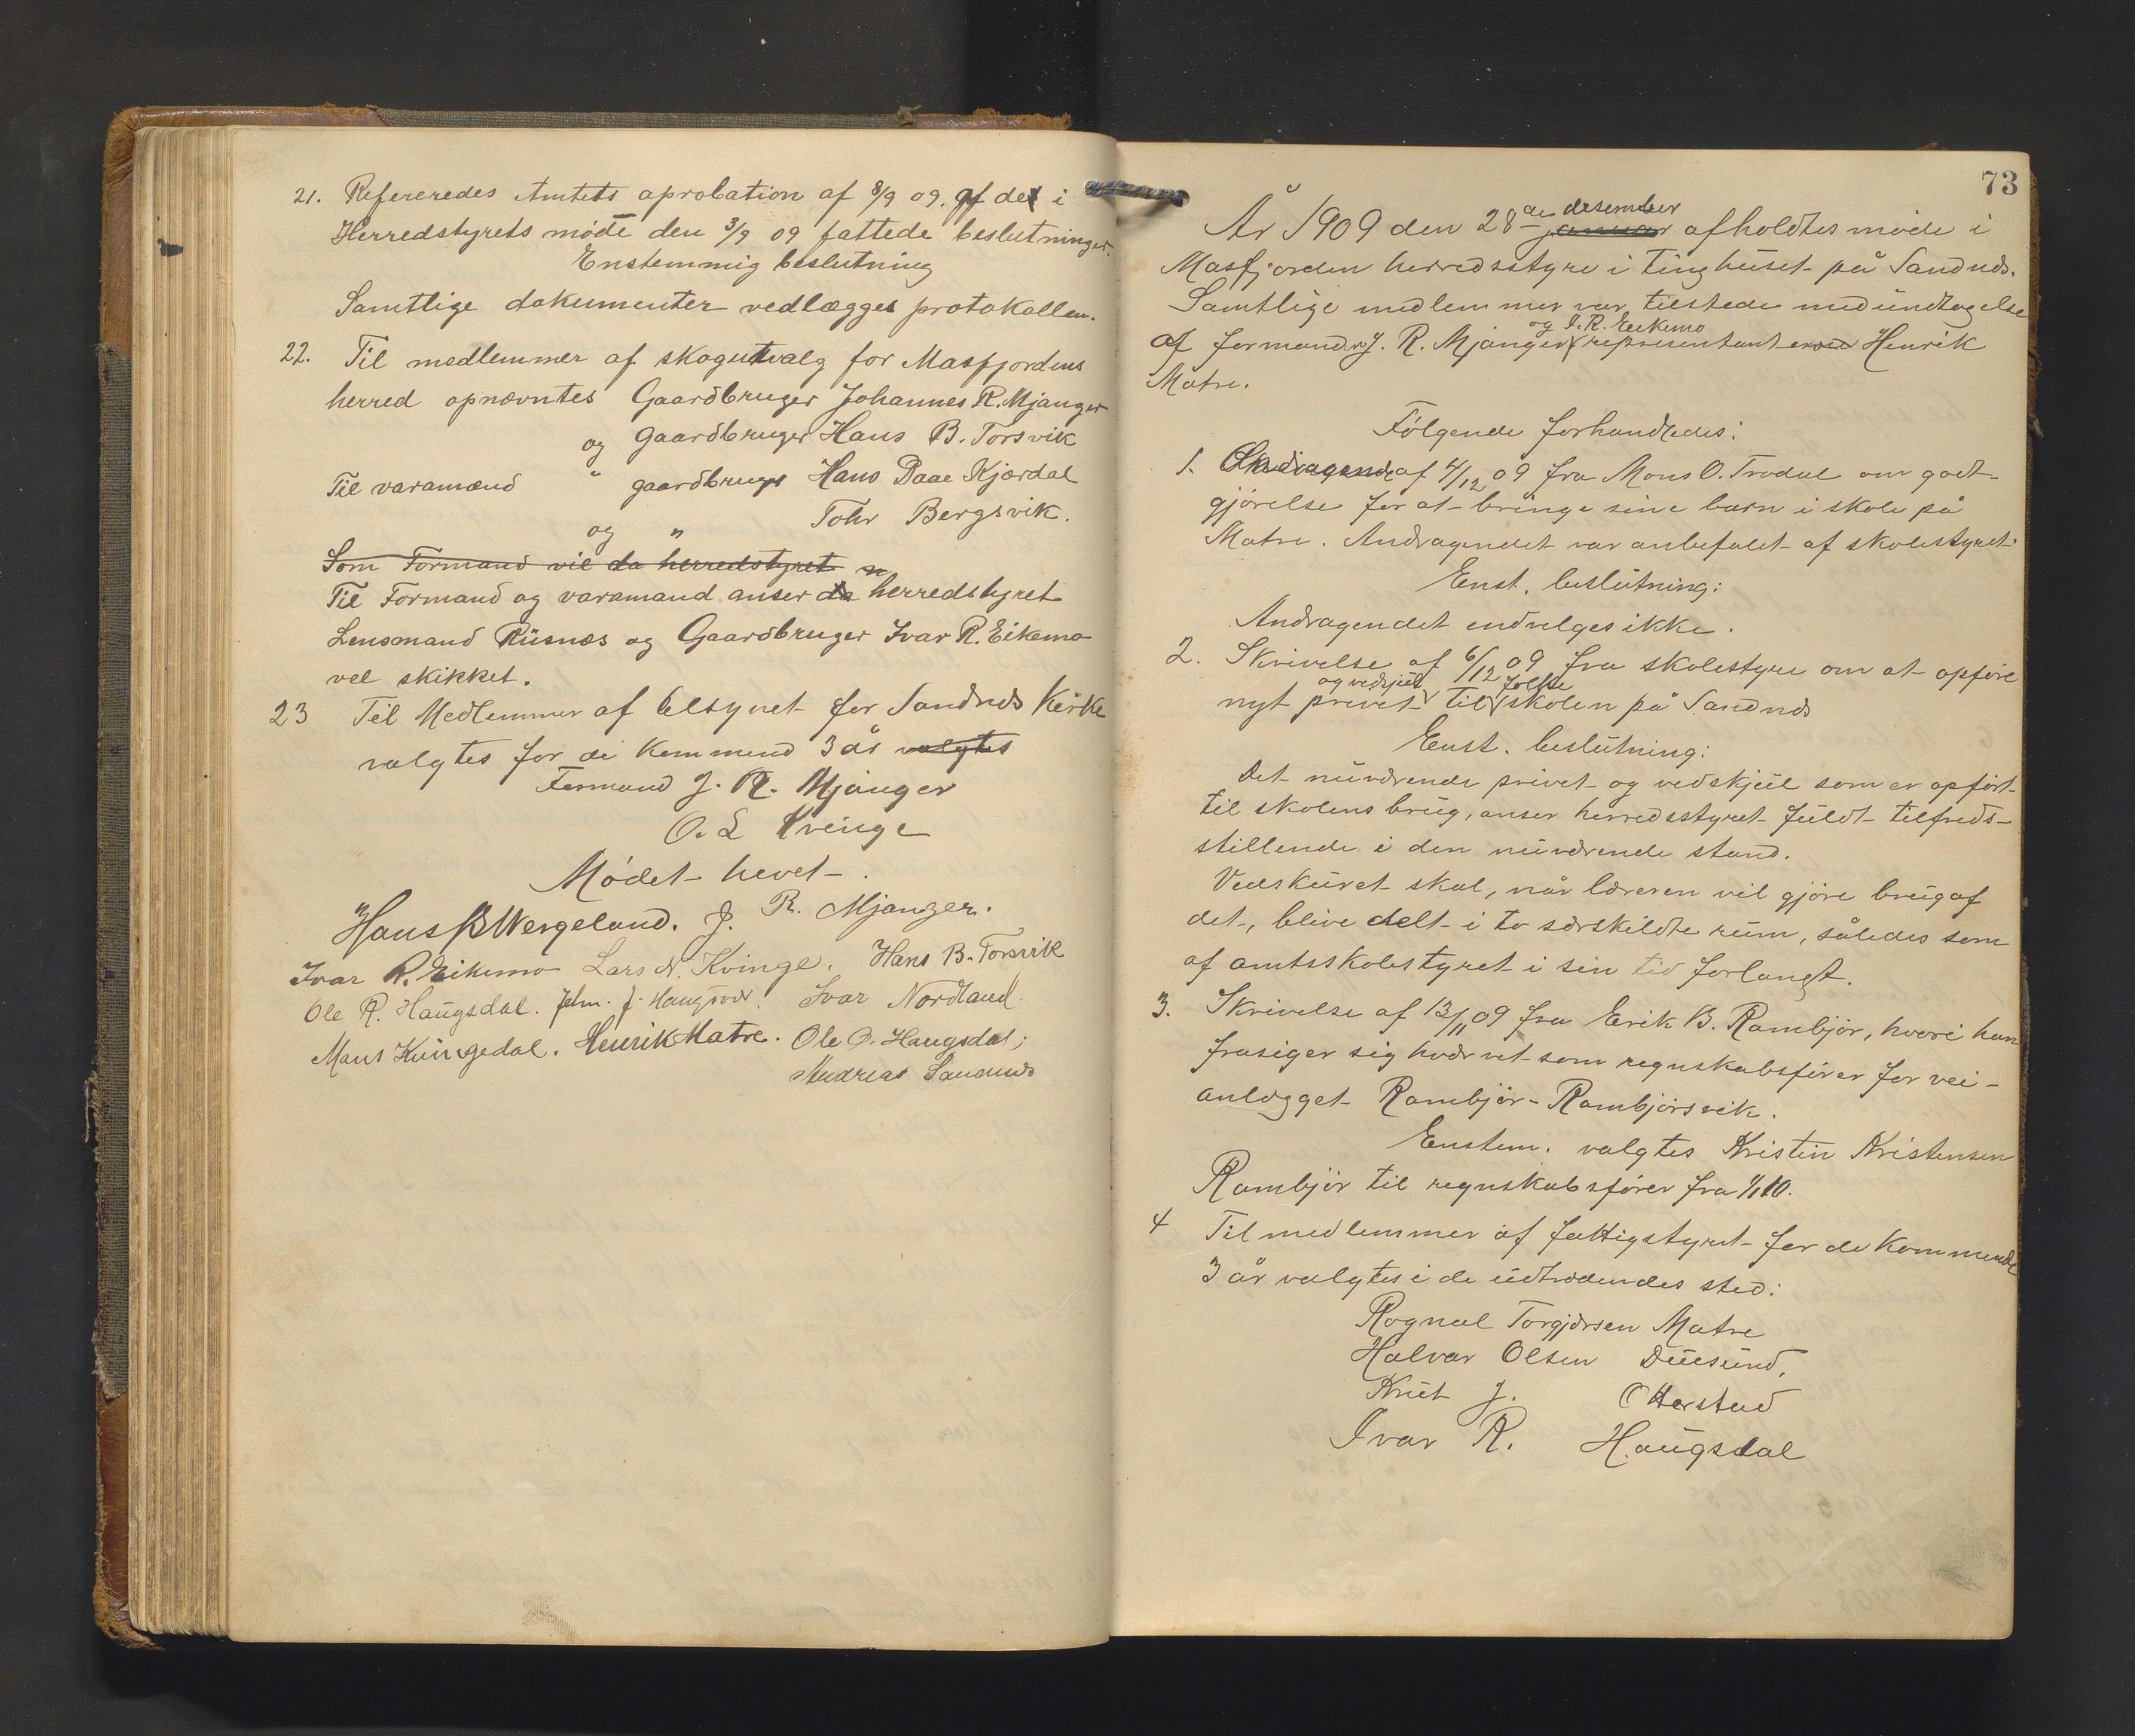 21. Refereredes Amtets aprobation af 8/9 09. af de i
Herredstyrets møde den 3/9 09 fattede beslutninger.
Enstemmig beslutning
Samtlige dokumenter vedlægges protokollen.
22. Til medlemmer af skogutvalg for Masfjordens
herred opnævntes Gaardbruger Johannes R. Mjanger
og Gaardbruger Hans B. Torsvik
Til varamænd " gaardbruger Hans Daae Kjærdal
og " Tohr Bergsvik.
Som Formand vil da herredstyret
Til Formand og varamand anser da herredstyret
Lensmand Risnæs og Gaardbruger Ivar R. Eikemo
vel skikket.
23 Til Medlemmer af tilsynet for Sandnæs Kirke
valgtes for de kommend 3 år valgtes
Formand J. R. Mjanger
O. L Kvinge
Mødet hevet.
Hans B Wergeland. J. R. Mjanger.
Ivar R. Eikemo Lars N. Kvinge. Hans B. Torsvik
Ole R. Haugsdal. Johs. J. Haugsvær. Ivar Nordland
Mans Kvingedal. Henrik Matre. Ole O. Haugsdal;
Andreas Sandnæs
73
År 1909 den 28de desember januar afholdtes møde i
Masfjorden herredsstyre i tinghuset på Sandnæs.
Samtlige medlemmer var tilstede med undtagelse
af formand J. R. Mjanger og I. R. Eikemo representant Henrik
Matre.
Følgende forhandledes:
1. Andragende af 4/12 09 fra Mons O. Trodal om godt-
gjørelse for at bringe sine barn i skole på
Matre. Andragendet var anbefalet af skolestyret.
Enst. beslutning:
Andragendet endvelges ikke.
2. Skrivelse af 6/12 09 fra skolestyre om at opføre
nyt privet og vedsjul til folkeskolen på Sandnæs
Enst. beslutning:
Det nuværende privet og vedskjul som er opført
til skolens brug, anser herredsstyret fuldt tilfreds-
stillende i den nuværende stand.
Vedskuret skal, når læreren vil gjøre brug af
det, blive delt i to særskildte rum, således som
af amtsskolestyret i sin tid forlangt.
3. Skrivelse af 13/11 09 fra Erik B. Rambjør, hvori han
frasiger sig hvervet som regnskabsfører for vei-
anlægget Rambjør-Rambjørsvik.
Enstem. valgtes Kristin Kristensen
Rambjør til regnskabsfører fra 1/1 10.
4 Til medlemmer af fattigstyret for de kommende
3 år valgtes i de udtrædendes sted:
Rognal Torgjersen Matre
Halvar Olsen Duesund,
Knut J. Otterstad
Ivar R. Haugsdal